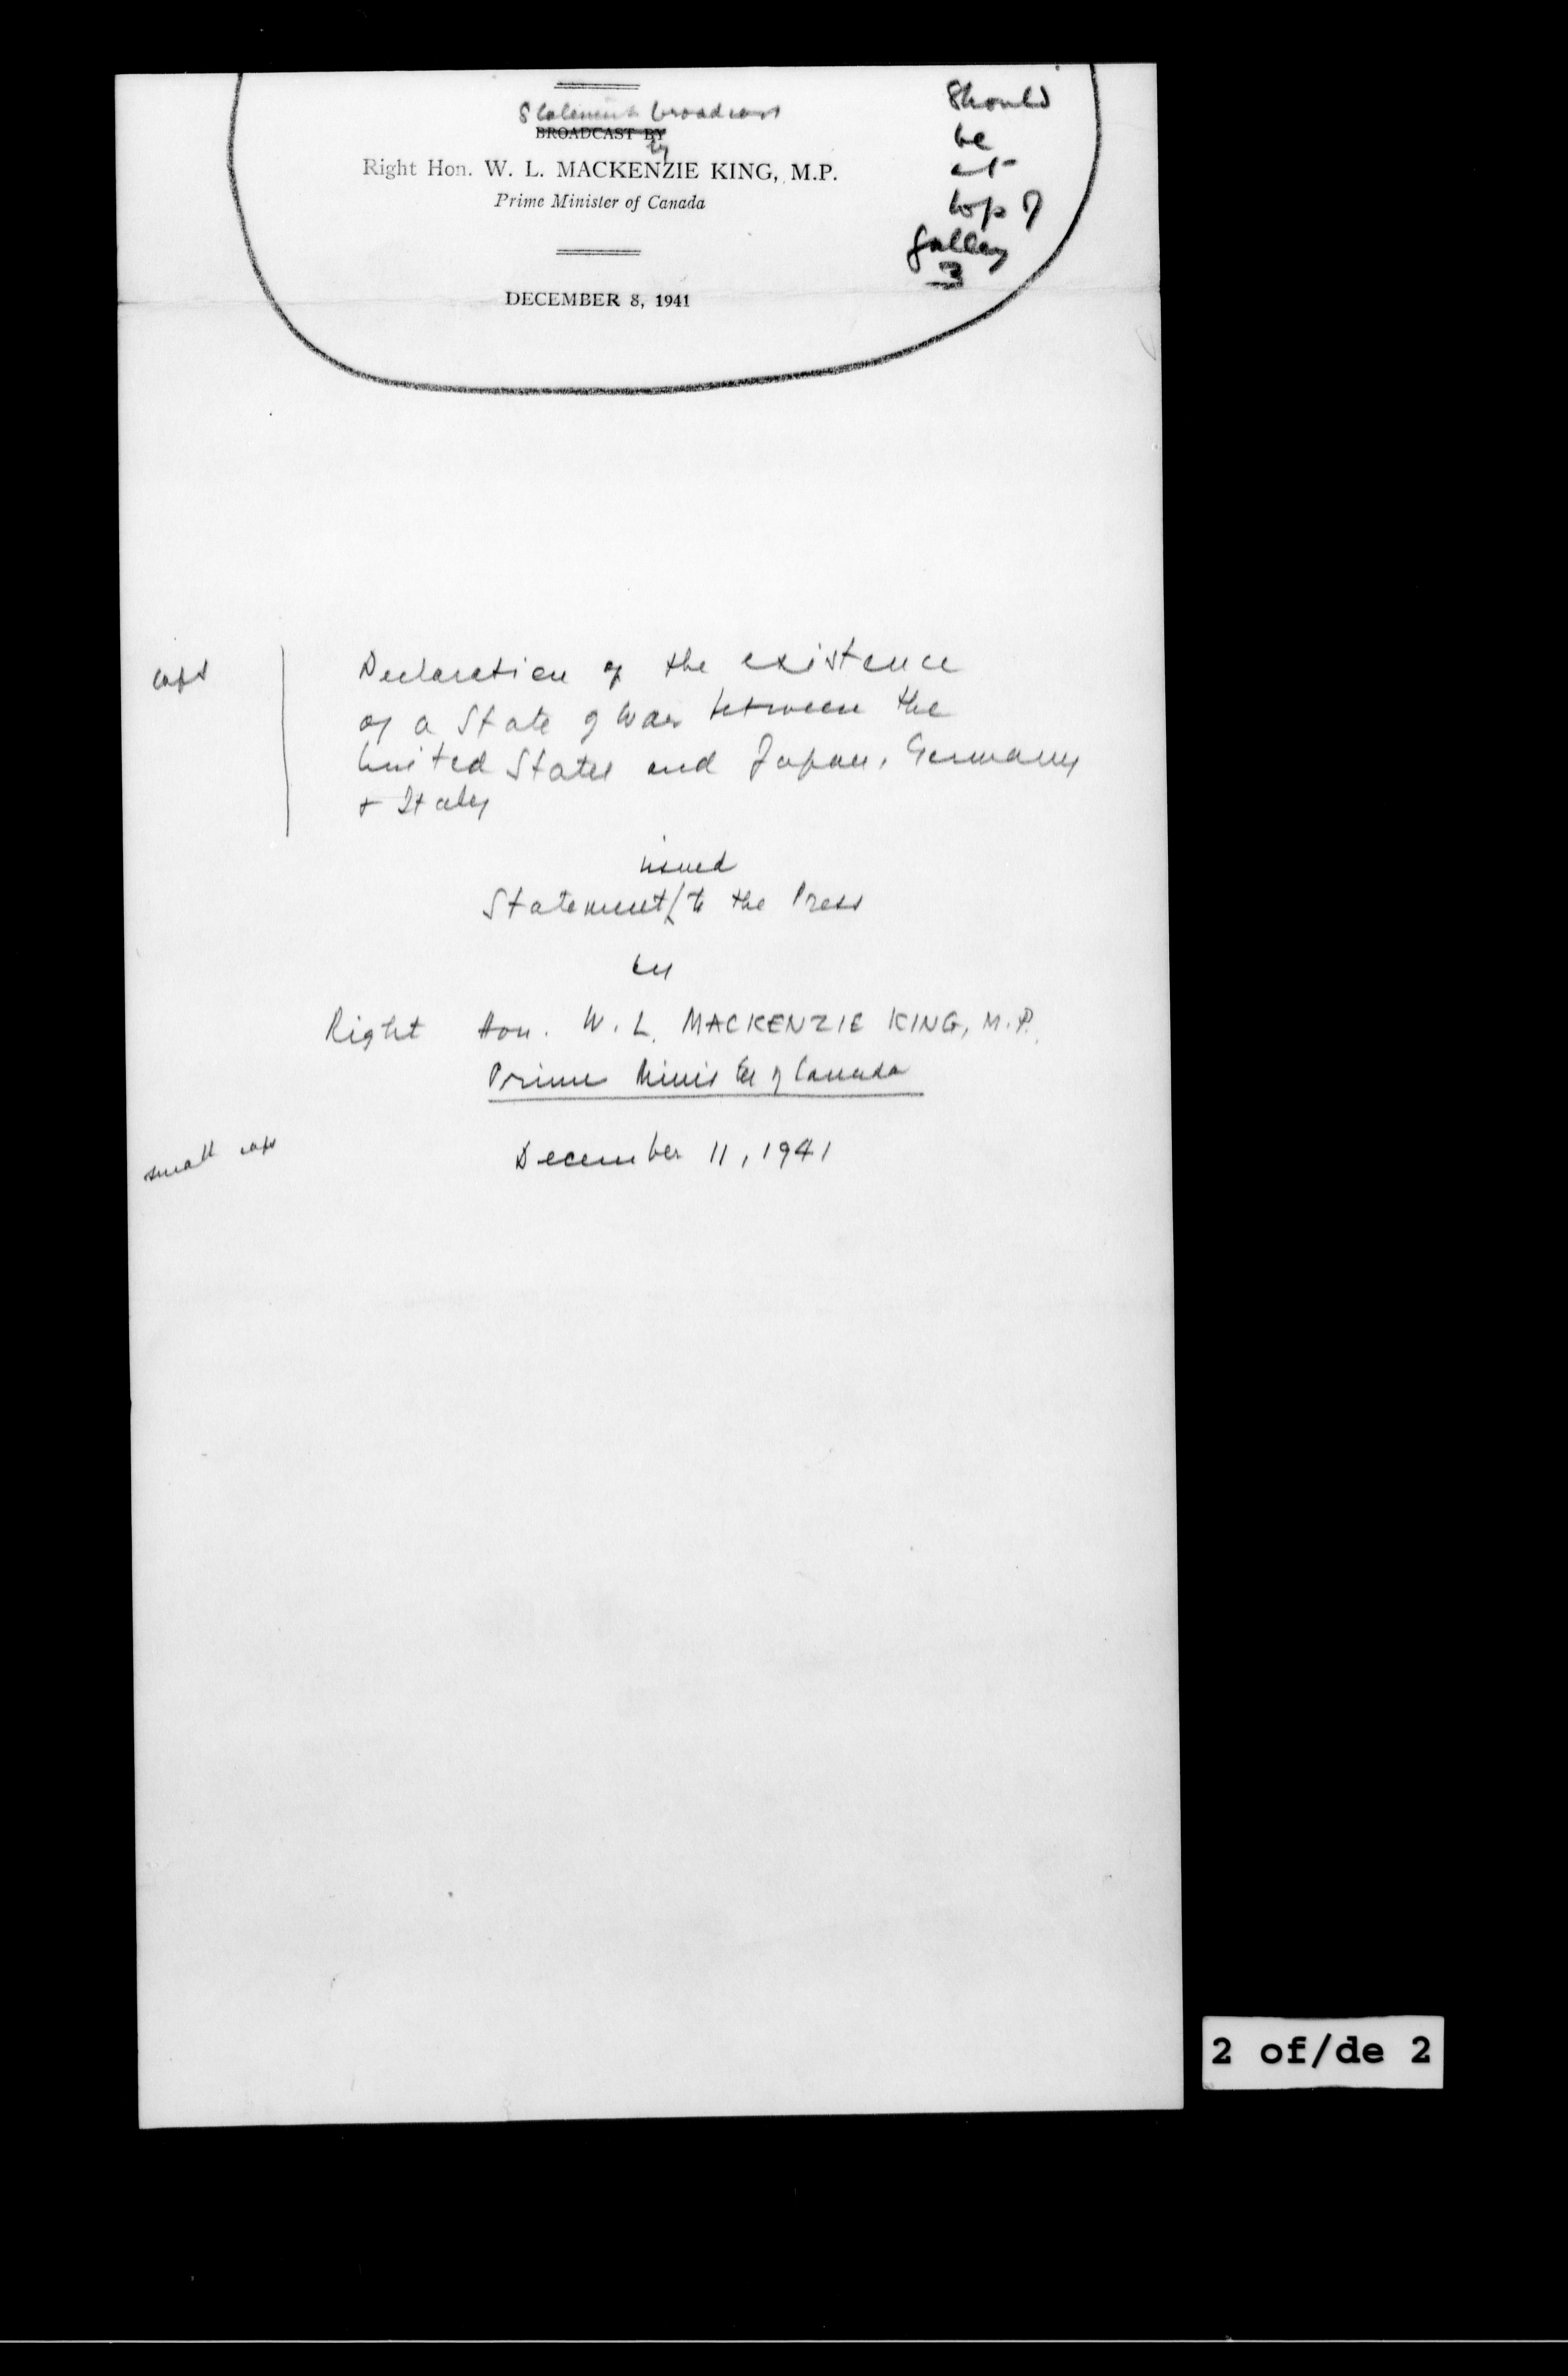 Statement broadcast
BROADCAST BY
by
Right Hon. W. L. MACKENZIE KING, M.P.
Prime Minister of Canada
DECEMBER 8, 1941
Should
be
at
top of
galley
3
caps
Declaration of the existence
of a State of War between the
United States and Japan, Germany
+ Italy
issued
Statement to the Press
by
Right Hon. W. L. MACKENZIE KING, M.P.
Prime Minister of Canada
small caps
December 11, 1941
2 of/de 2